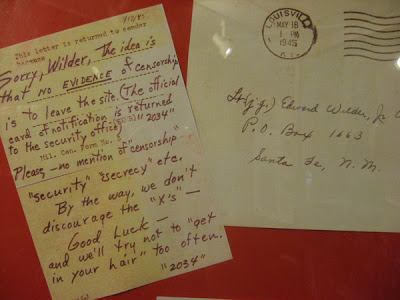 5/17/45
This letter is returned to sender
Sorry, Wilder, The idea is
that no EVIDENCE of censorship
is to leave the site. (The official
card of notification is returned
to the security office) "2034"
Mil. Cen. Form No.
Please - no mention of "censorship"
"security" "secrecy" etc.
By the way, we don't
discourage the "X's" —
Good Luck —
and we'll try not to "get
in your hair" too often.
"2034"
LOUISVILLE
MAY 18
1 PM
1945
Lt. (j.g.) Edward Wilder, Jr.
P.O. Box 1663
Santa Fe, N. M.